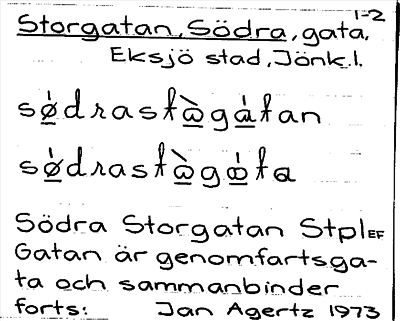 1-2
Storgatan, Södra, gata,
Eksjö stad, Jönk.l.
sø̲̀drastὼ̲gá̲tan
sø̲̀drastὼ̲gώ̲ta
Södra Storgatan StplEF
Gatan är genomfartsga-
ta och sammanbinder
forts: Jan Agertz 1973